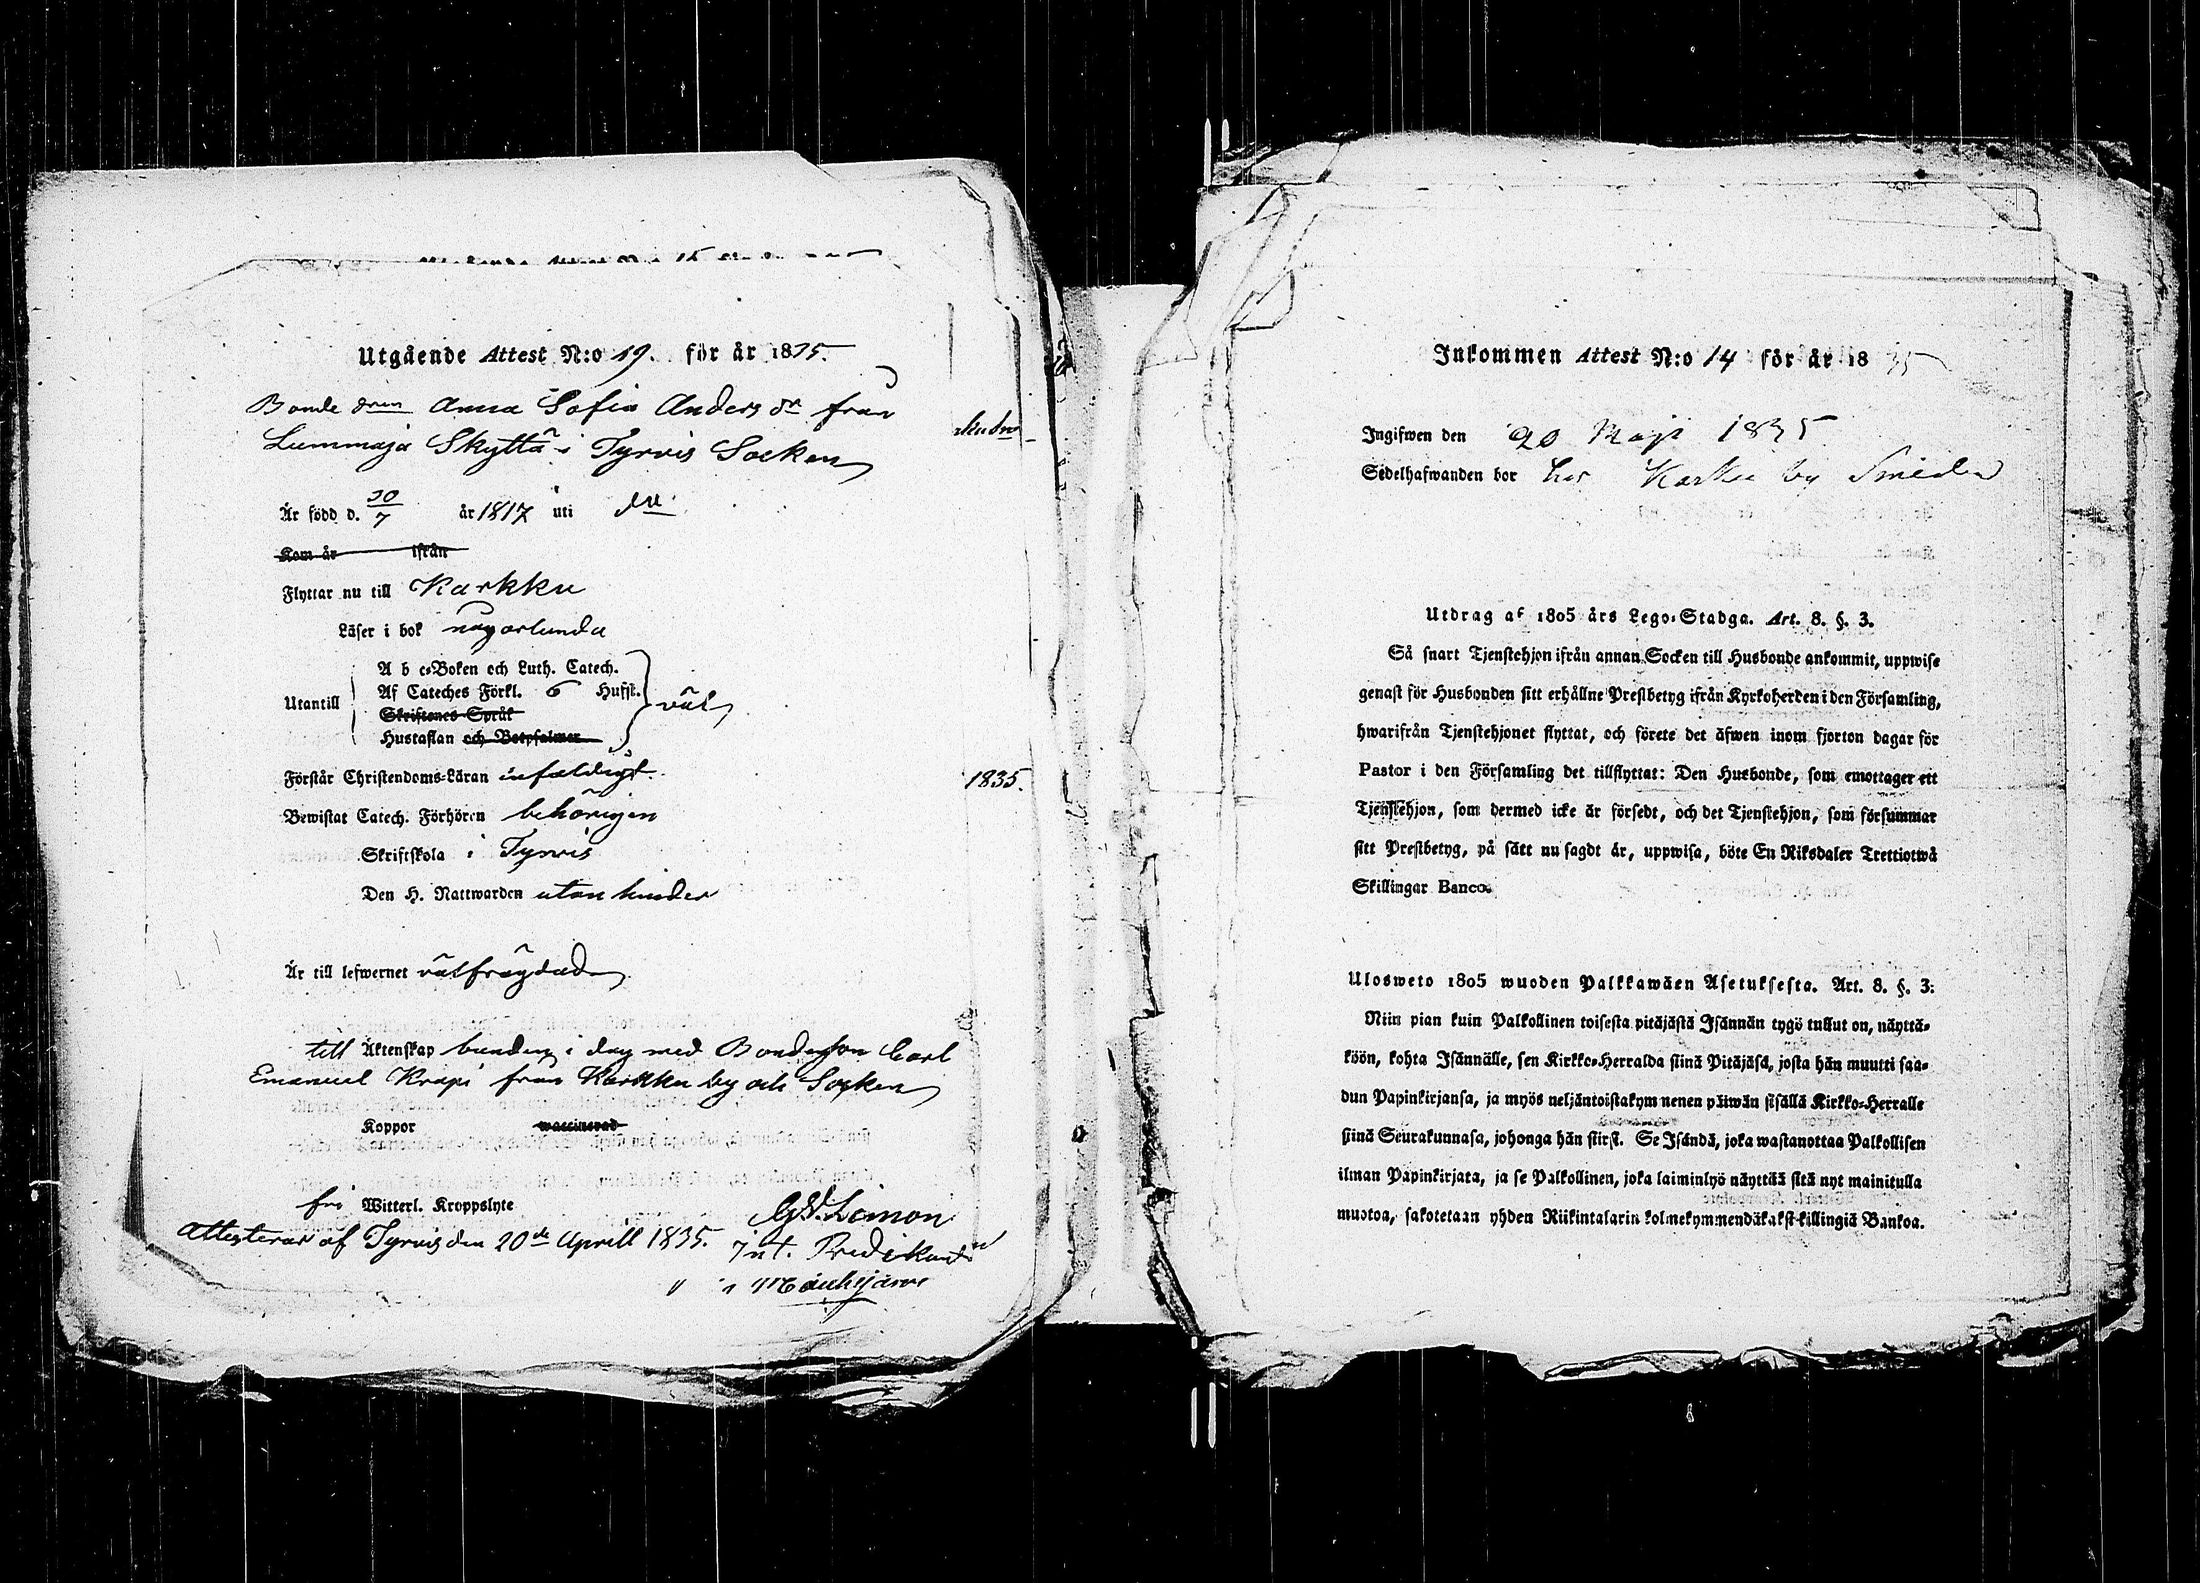 Utgående Attest N:o 19. för år 1835.
Bonde dren Anna Sofia Anders dr från
Lummaja Skyttä i Tyrvis Socken
Är född d. 30/7 år 1817 uti do
Kom år ifrån
Flyttar nu till Karkku
Läser i bok någorlunda
A b c-Boken och Luth. Catech.
Af Cateches Förkl. 6 Hufst.
Utantill väl
Skriftenes Språk
Hustaflan och Botpsalmer
Förstår Christendoms-Läran enfaldigt
Bewistat Catech. Förhören behörigen
Skriftskola i Tyrvis
Den H. Nattwarden utan hinder
Är till lefwernet välfrägdad
till Äktenskap bunden i dag med Bondeson Carl
Emanuel Krapi från Karkku by och Socken
Koppor waccinerad
fri Witterl. Kroppslyte
Attesterar af Tyrvis den 20de Aprill 1835.
Int. Predikant
1835.
Inkommen Attest N:o 14 för år 1835
Ingifwen den 20 Maji 1835
Sedelhafwanden bor här Karkku by
Utdrag af 1805 års Lego-Stadga. Art. 8. §. 3.
Så snart Tjenstehjon ifrån annan Socken till Husbonde ankommit, uppwise
genast för Husbonden sitt erhållne Prestbetyg ifrån Kyrkoherden i den Församling,
hwarifrån Tjenstehjonet flyttat, och förete det äfwen inom fjorton dagar för
Pastor i den Församling det tillflyttat: Den Husbonde, som emottager ett
Tjenstehjon, som dermed icke är försedt, och det Tjenstehjon, som försummar
sitt Prestbetyg, på sätt nu sagdt är, uppwisa, böte En Riksdaler Trettiotwå
Skillingar Banco.
Ulosweto 1805 wuoden Palkkawäen Asetuksesta. Art. 8. §. 3:
Niin pian kuin Palkollinen toisesta pitäjästä Isännän tygö tullut on, näyttä-
köön, kohta Isännälle, sen Kirkko-Herralda siinä Pitäjäsä, josta hän muutti saa-
dun Papinkirjansa, ja myös neljäntoistakymmenen päiwän sisällä Kirkko-Herralle
siinä Seurakunnasa, johonga hän siirsi. Se Isändä, joka wastanottaa Palkollisen
ilman Papinkirjata, ja se Palkollinen, joka laiminlyö näyttää sitä nyt mainitulla
muotoa, sakotetaan yhden Riikintalarin kolmekymmendäkaksi killingiä Bankoa.